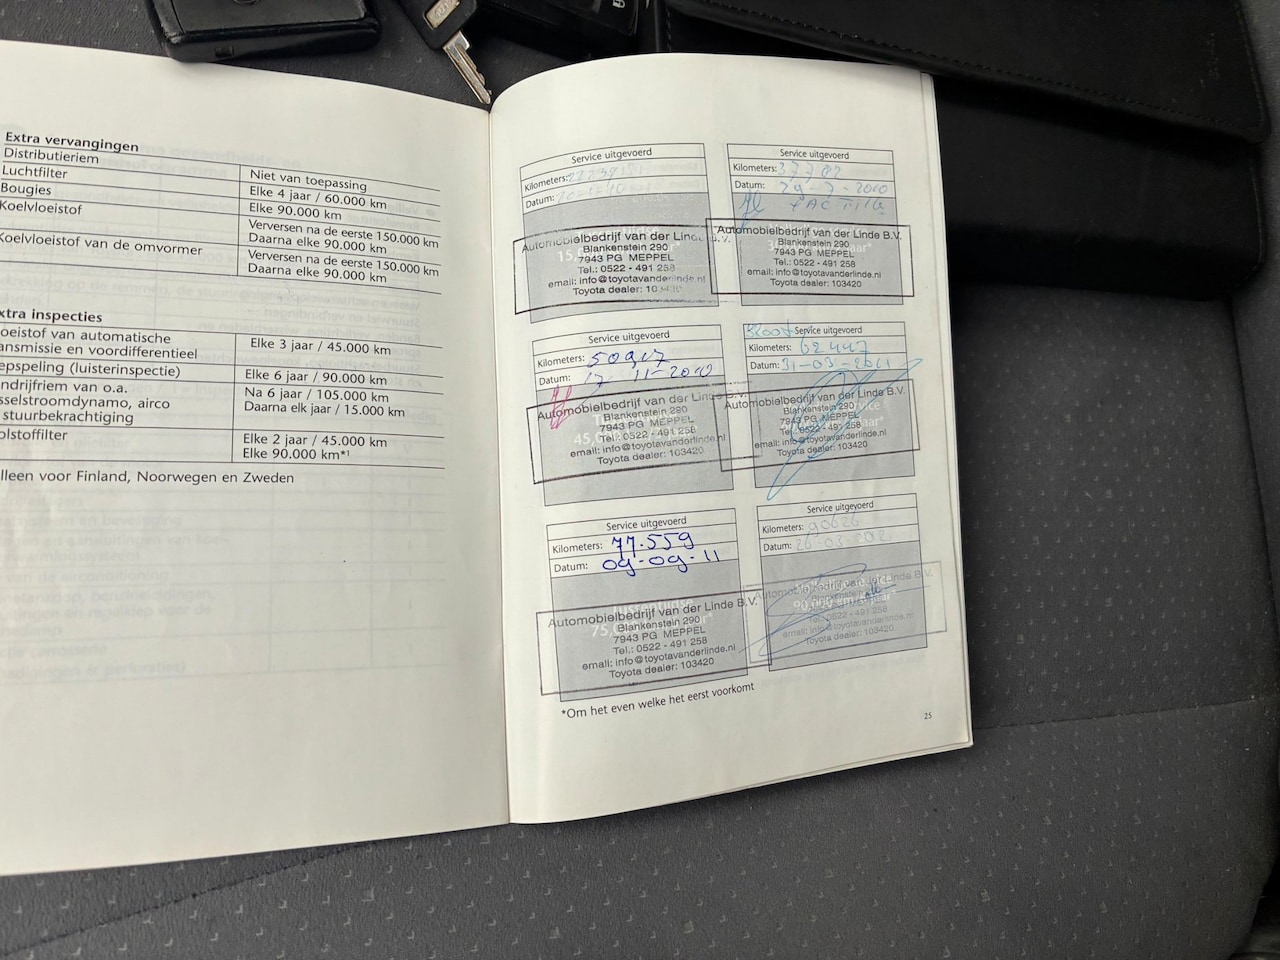 Extra vervangingen
Distributieriem Niet van toepassing
Luchtfilter Elke 4 jaar / 60.000 km
Bougies Elke 90.000 km
Koelvloeistof Verversen na de eerste 150.000 km
Daarna elke 90.000 km
Koelvloeistof van de omvormer Verversen na de eerste 150.000 km
Daarna elke 90.000 km
xtra inspecties
oeistof van automatische Elke 3 jaar / 45.000 km
ansmissie en voordifferentieel
epspeling (luisterinspectie) Elke 6 jaar / 90.000 km
ndrijfriem van o.a. Na 6 jaar / 105.000 km
sselstroomdynamo, airco Daarna elk jaar / 15.000 km
stuurbekrachtiging
olstoffilter Elke 2 jaar / 45.000 km
Elke 90.000 km*1
lleen voor Finland, Noorwegen en Zweden
Service uitgevoerd
Kilometers:
Datum:
Automobielbedrijf van der Linde B.V.
Blankenstein 290
7943 PG MEPPEL
Tel.: 0522 - 491 258
email: info@toyotavanderlinde.nl
Toyota dealer:
Service uitgevoerd
Kilometers: 37782
Datum: 29-7-2010
Automobielbedrijf van der Linde B.V.
Blankenstein 290
7943 PG MEPPEL
Tel.: 0522 - 491 258
email: info@toyotavanderlinde.nl
Toyota dealer: 103420
Service uitgevoerd
Kilometers: 50917
Datum: 17-11-2010
Automobielbedrijf van der Linde B.V.
Blankenstein 290
7943 PG MEPPEL
Tel.: 0522 - 491 258
email: info@toyotavanderlinde.nl
Toyota dealer: 103420
Service uitgevoerd
Kilometers: 62447
Datum: 31-03-2011
Automobielbedrijf van der Linde B.V.
Blankenstein 290
7943 PG MEPPEL
Tel.: 0522 - 491 258
email: info@toyotavanderlinde.nl
Toyota dealer: 103420
Service uitgevoerd
Kilometers: 77.559
Datum: 09-09-11
Automobielbedrijf van der Linde B.V.
Blankenstein 290
7943 PG MEPPEL
Tel.: 0522 - 491 258
email: info@toyotavanderlinde.nl
Toyota dealer: 103420
Service uitgevoerd
Kilometers: 90626
Datum:
Automobielbedrijf van der Linde B.V.
Blankenstein
7943 PG MEPPEL
Tel.: 0522 - 491 258
email: info@toyotavanderlinde.nl
Toyota dealer: 103420
*Om het even welke het eerst voorkomt
25